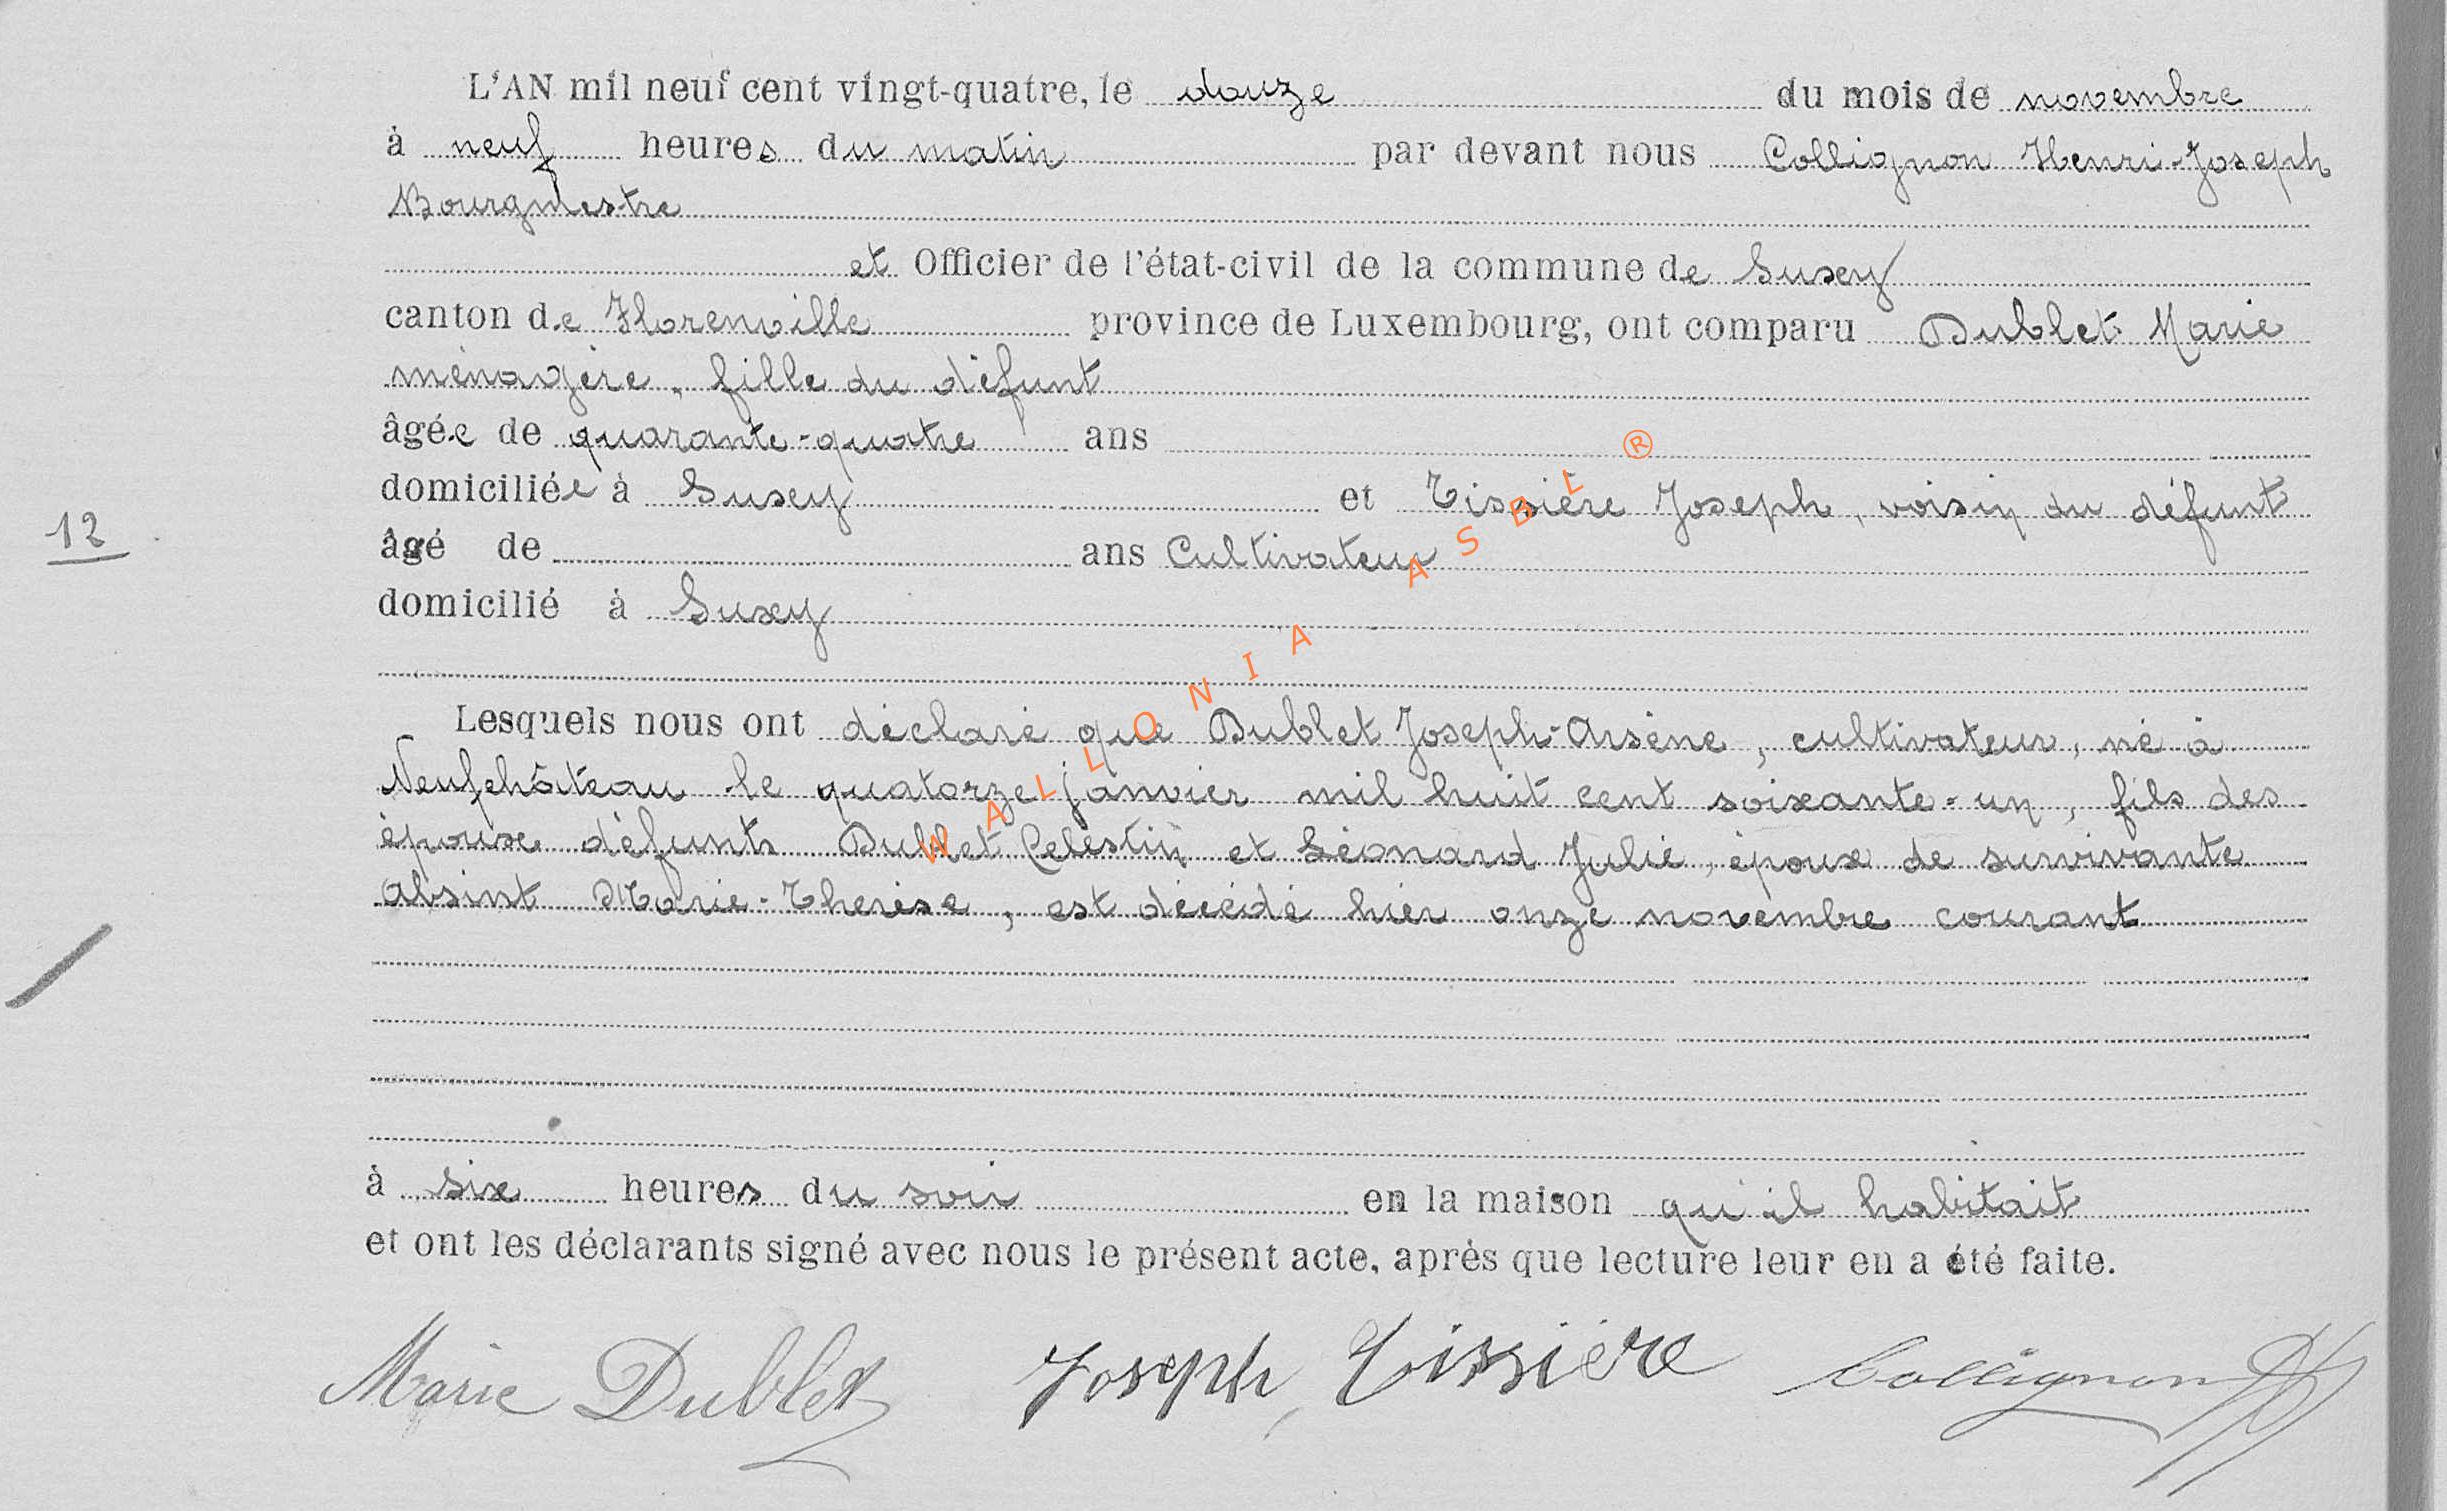 L'AN mil neuf cent vingt-quatre, le douze du mois de novembre
à neuf heures du matin par devant nous Collignon Henri-Joseph
Bourgmestre
et Officier de l'état-civil de la commune de Suxy
canton de Florenville province de Luxembourg, ont comparu Dublet Marie
ménagère, fille du défunt
âgée de quarante-quatre ans
domiciliée à Suxy et Tissière Joseph, voisin du défunt
12
âgé de ans Cultivateur
domicilié à Suxy
Lesquels nous ont déclaré que Dublet Joseph-Arsène, cultivateur, né à
Neufchâteau le quatorze janvier mil huit cent soixante-un, fils des
époux défunts Dublet Célestin et Léonard Julie, époux de survivante
Absint Marie-Thérèse, est décédé hier onze novembre courant
à six heures du soir en la maison qu'il habitait
et ont les déclarants signé avec nous le présent acte, après que lecture leur en a été faite.
Marie Dublet Joseph Tissière Collignon
WALLONIA ASBL ®